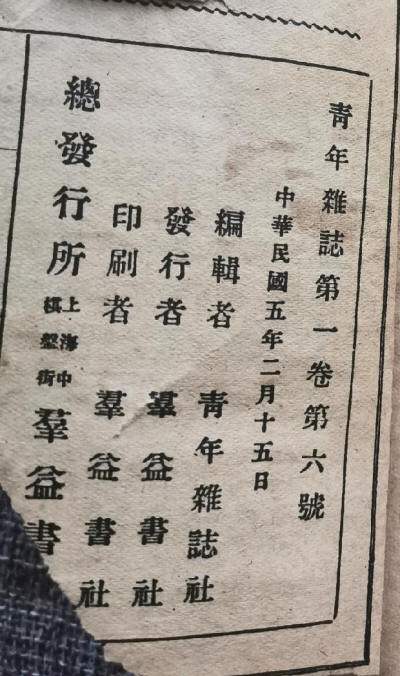 青年雜誌第一卷第六號
中華民國五年二月十五日
編輯者 青年雜誌社
發行者 羣益書社
印刷者 羣益書社
總發行所 上海中棋盤街 羣益書